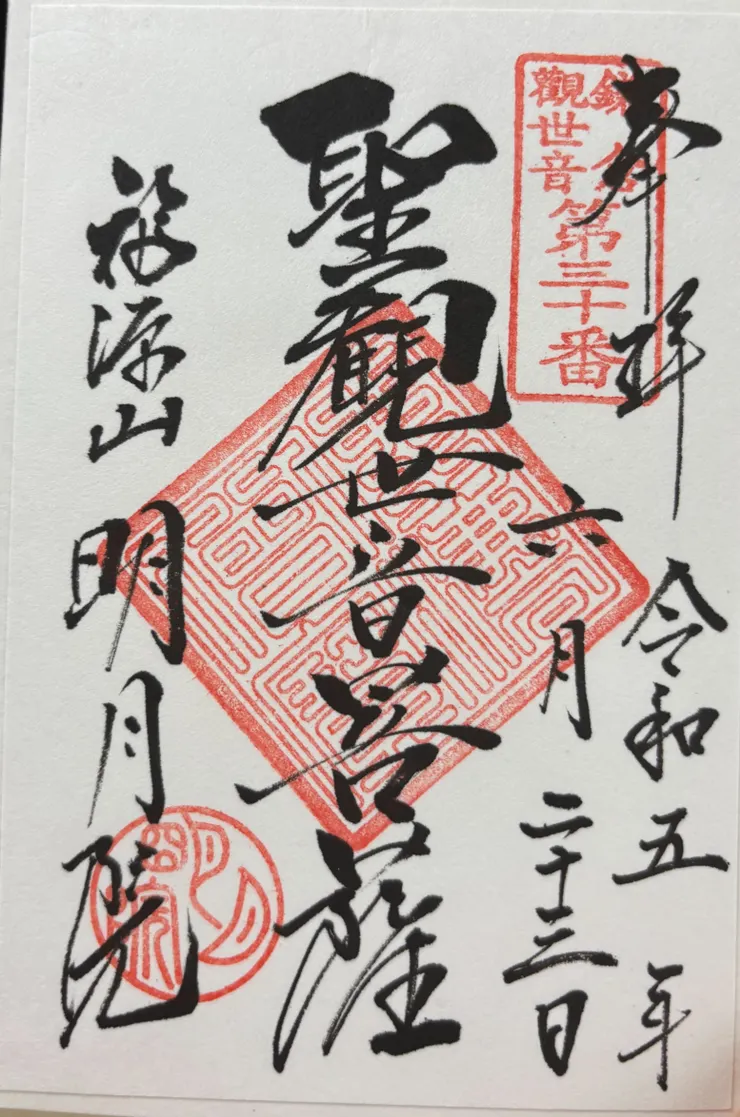 奉拝
令和五年
六月二十三日
鎌倉
觀世音
第三十番
聖觀世音菩薩
福源山
明月院